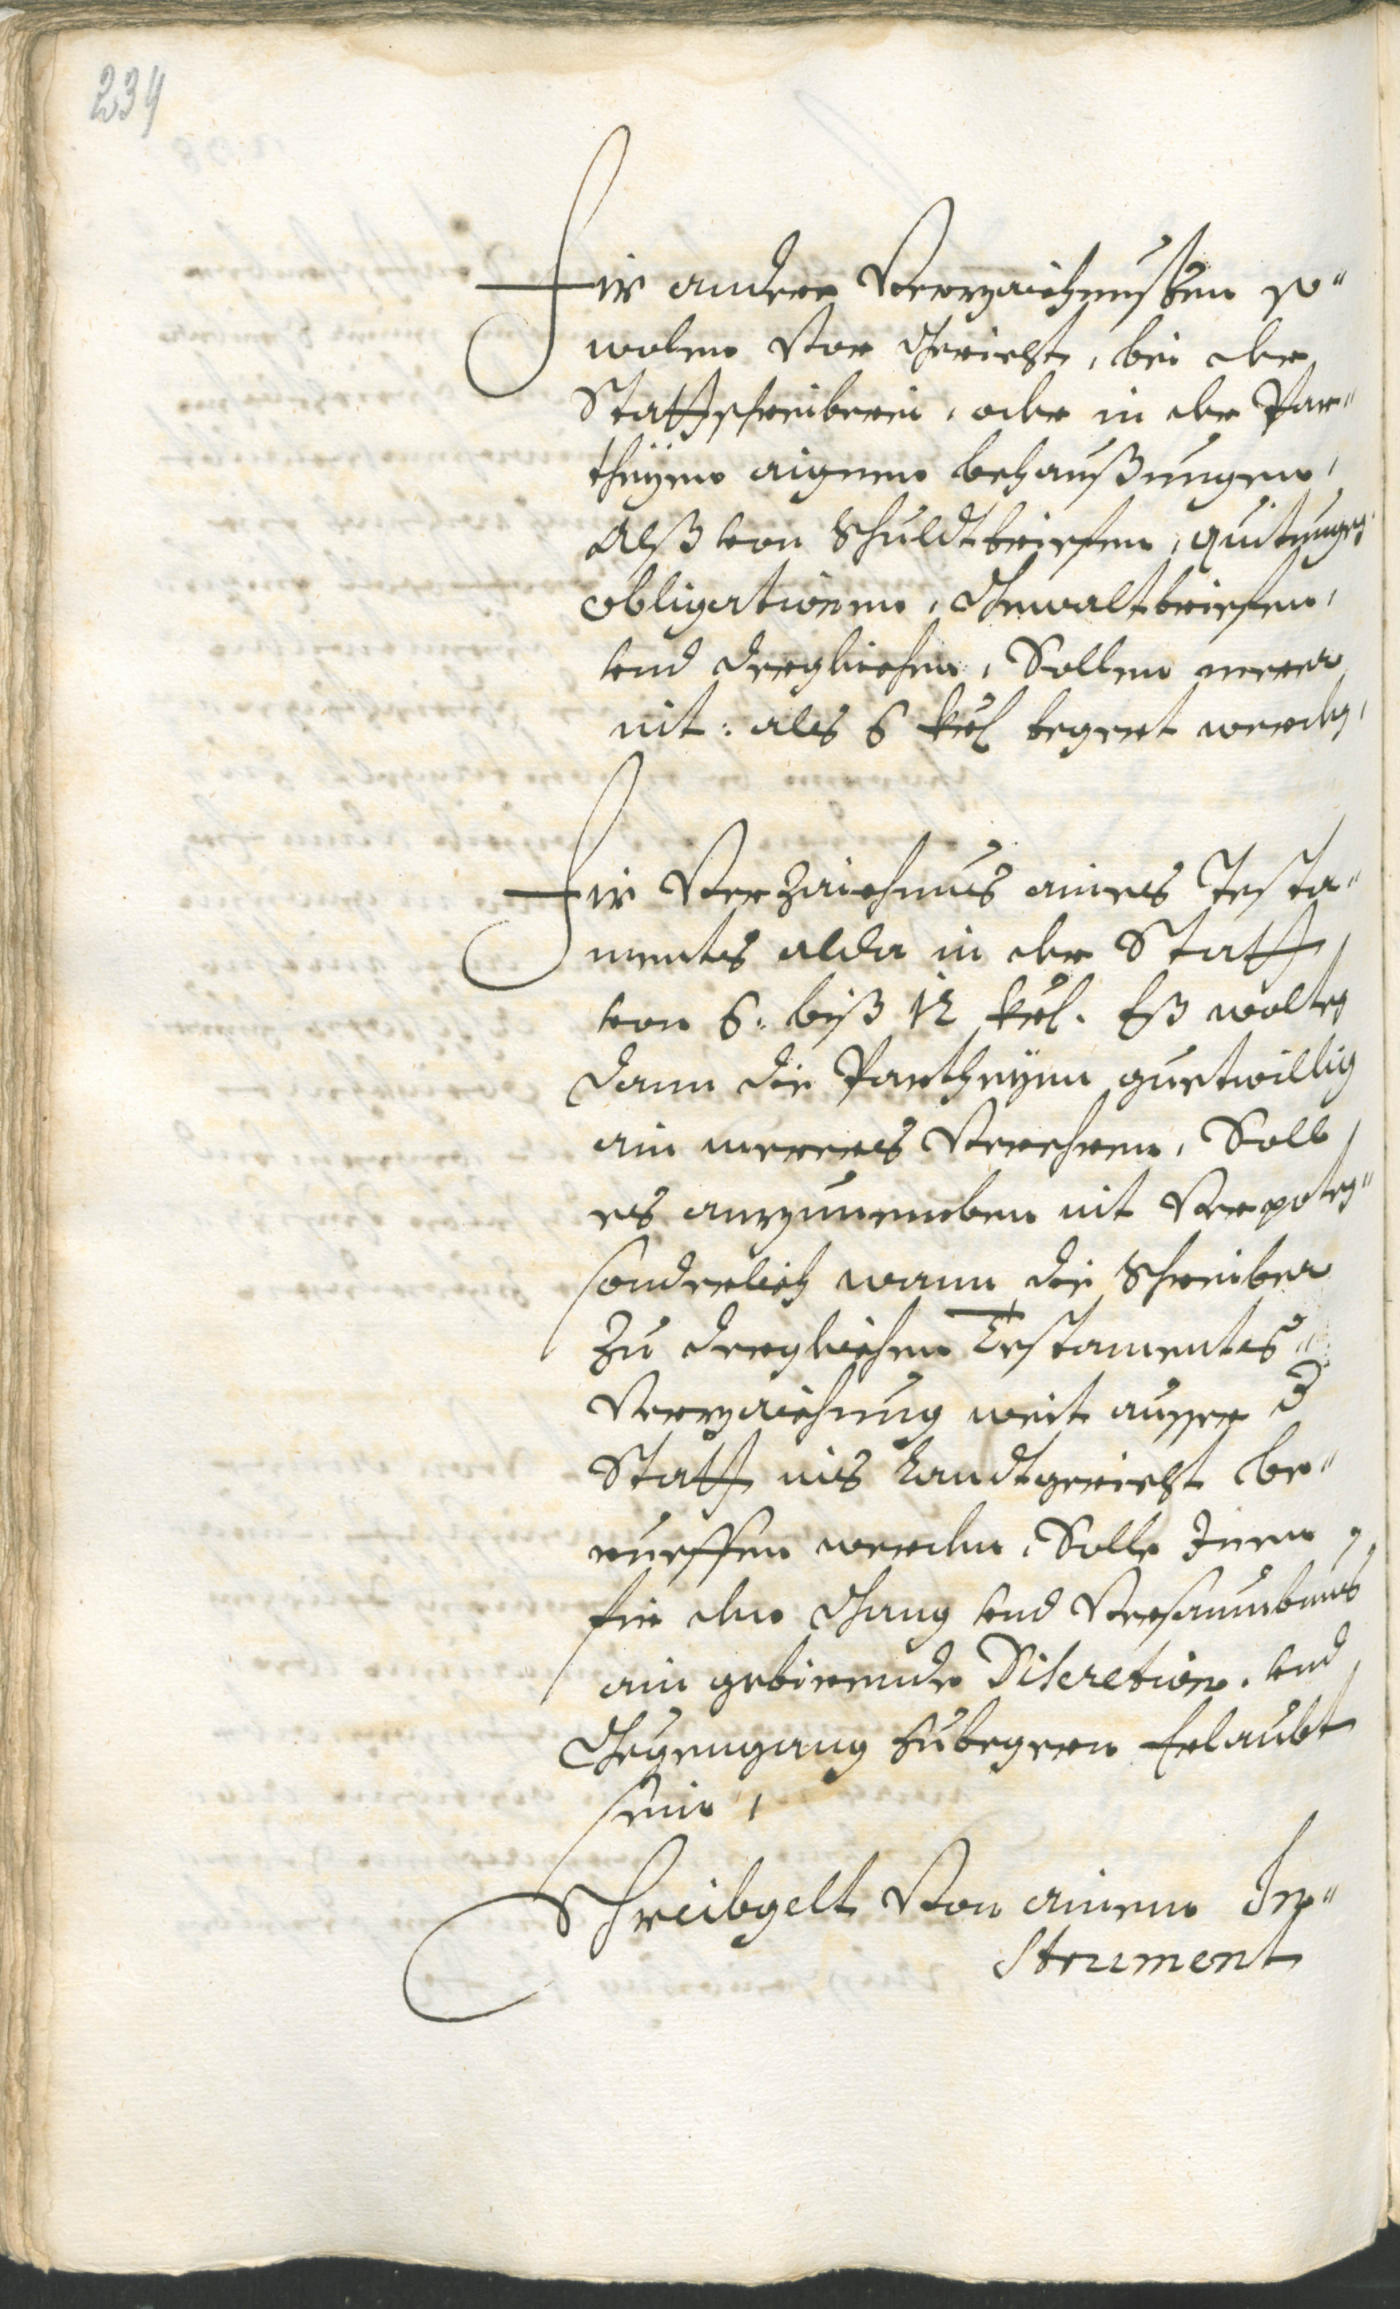 234
Fir andere Verzaichnussen so"
wolen Vor Gericht, bei der
Stattschreiberei, oder in der Par"
theyen aignen behaußungen,
Alß von Schuldtbriefen, quitungen,
obligationen, Gewaltbriefen,
vnd dergleichen, Sollen merer
nit: als 6 krl begert werden,
Fir Verzaichnus aines Testa"
ments alda in der Statt
von 6. biß 12 krl. Eß wolten
dann die Partheyen guetwillig
ain mereres Verehren, Soll
es anzunemben nit Verpoten"
sonderlich wann die Schreiber
Zu dergleichen Testaments"
Verzaichnung weit ausser d
Statt ins Landtgericht be"
rueffen werden, Solle Inen
fir den Gang vnd Versaumbnus
ain gebirende Discretion, vnd
Gegengang Zubegeren Erlaubt
sein,
Schreibgelt Von ainem In"
strument